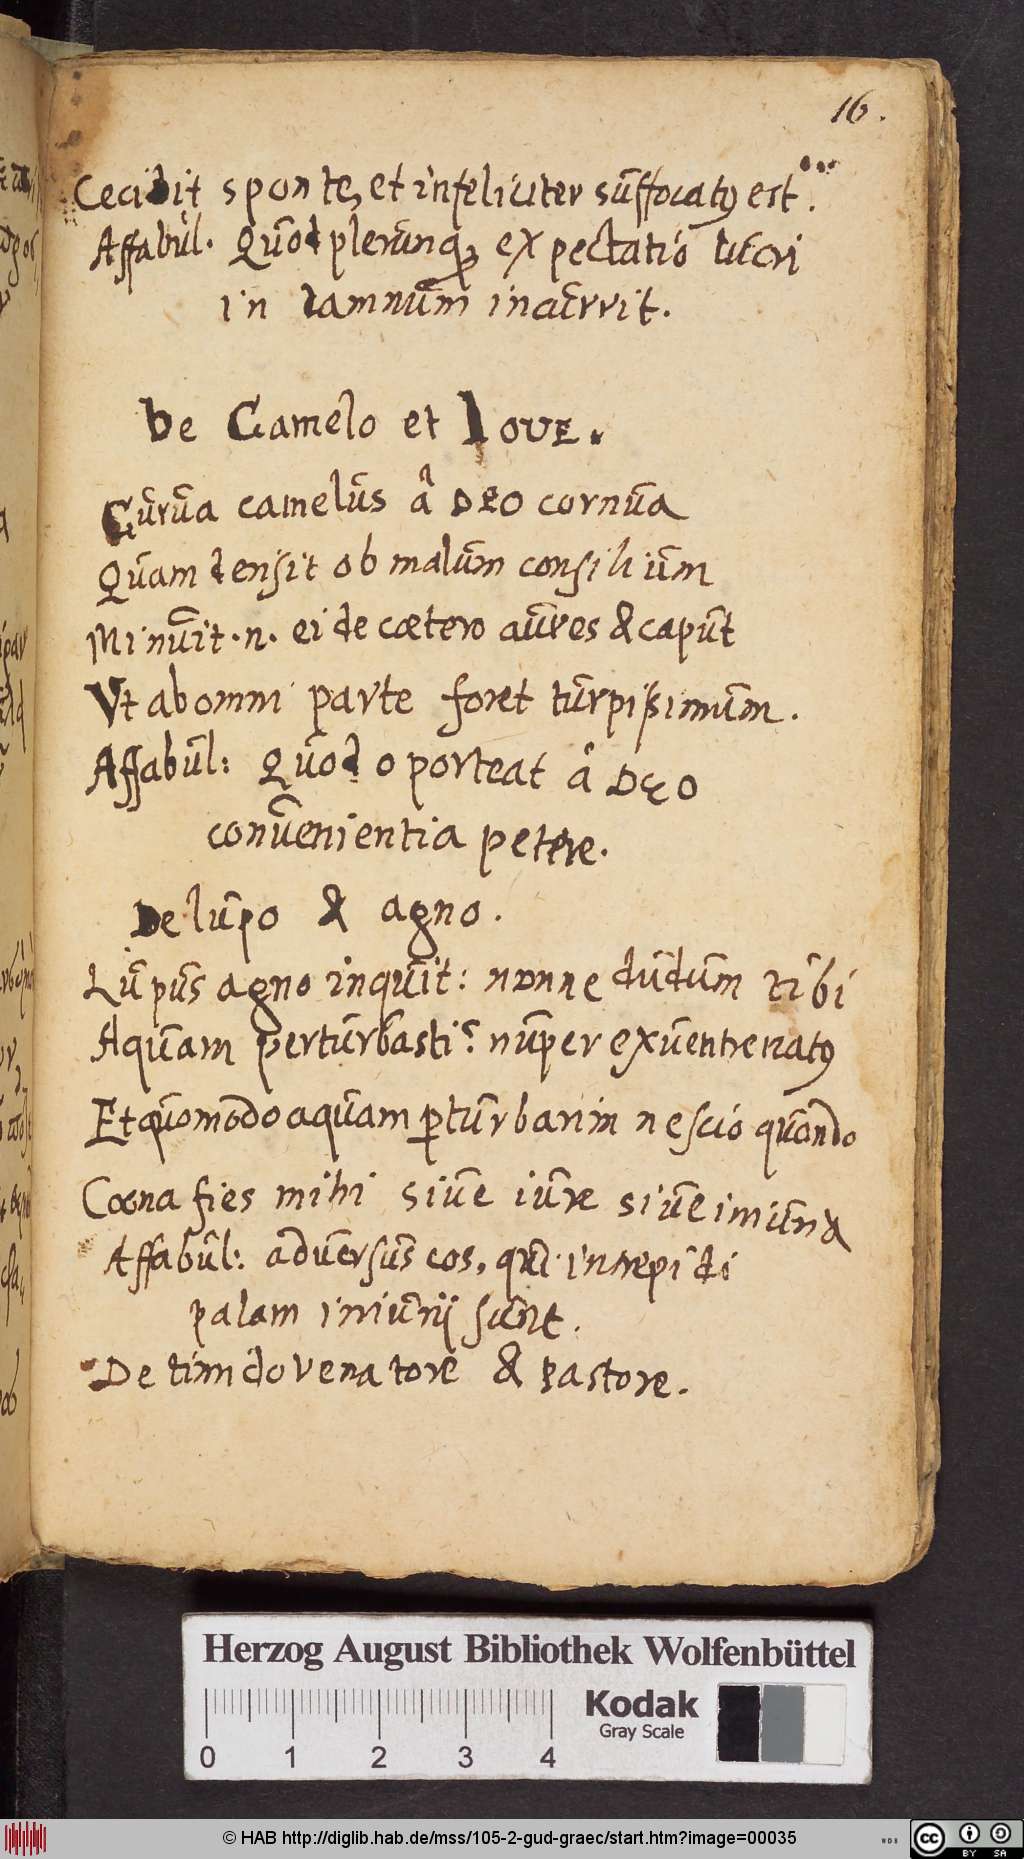 16.
Cecidit sponte, et infeliciter suffocatus est.
Affabul. Quod plerunq, expectatio lucri
in damnum incurrit.
De Camelo et Iove.
Curva camelus â DEO cornua
Quam densit ob malum consilium
Minuit .n. ei de cætero aures & caput
Vt ab omni parte foret turpissimum.
Affabul: Quod oporteat â DEO
convenientia petere.
De lupo & agno.
Lupus agno inquit: nonne dudum tibi
Aquam perturbasti? nuper exventrenatus
Et quomodo aquam perturbarim nescio quando
Coena fies mihi sive iure sive
Affabul: adversus eos, qui intrepidi
palam iniurij sunt.
De timido venatore & pastore.
Herzog August Bibliothek Wolfenbüttel
Kodak
Gray Scale
0 1 2 3 4
© HAB http://diglib.hab.de/mss/105-2-gud-graec/start.htm?image=00035
WDB
cc BY SA